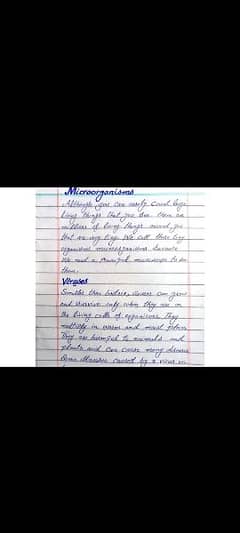 Microorganisms
Although you can easily count large
living things that you see there are
millions of living things around you
that are very tiny. We call these tiny
organisms microorganisms because
We need a powerful microscope to see
them.
Viruses
Smaller than bacteria, viruses can grow
and survive only when they are in
the living cells of organisms. They
multiply in warm and moist places
They are harmful to animals and
plants and can cause many diseases
Some diseases caused by a virus